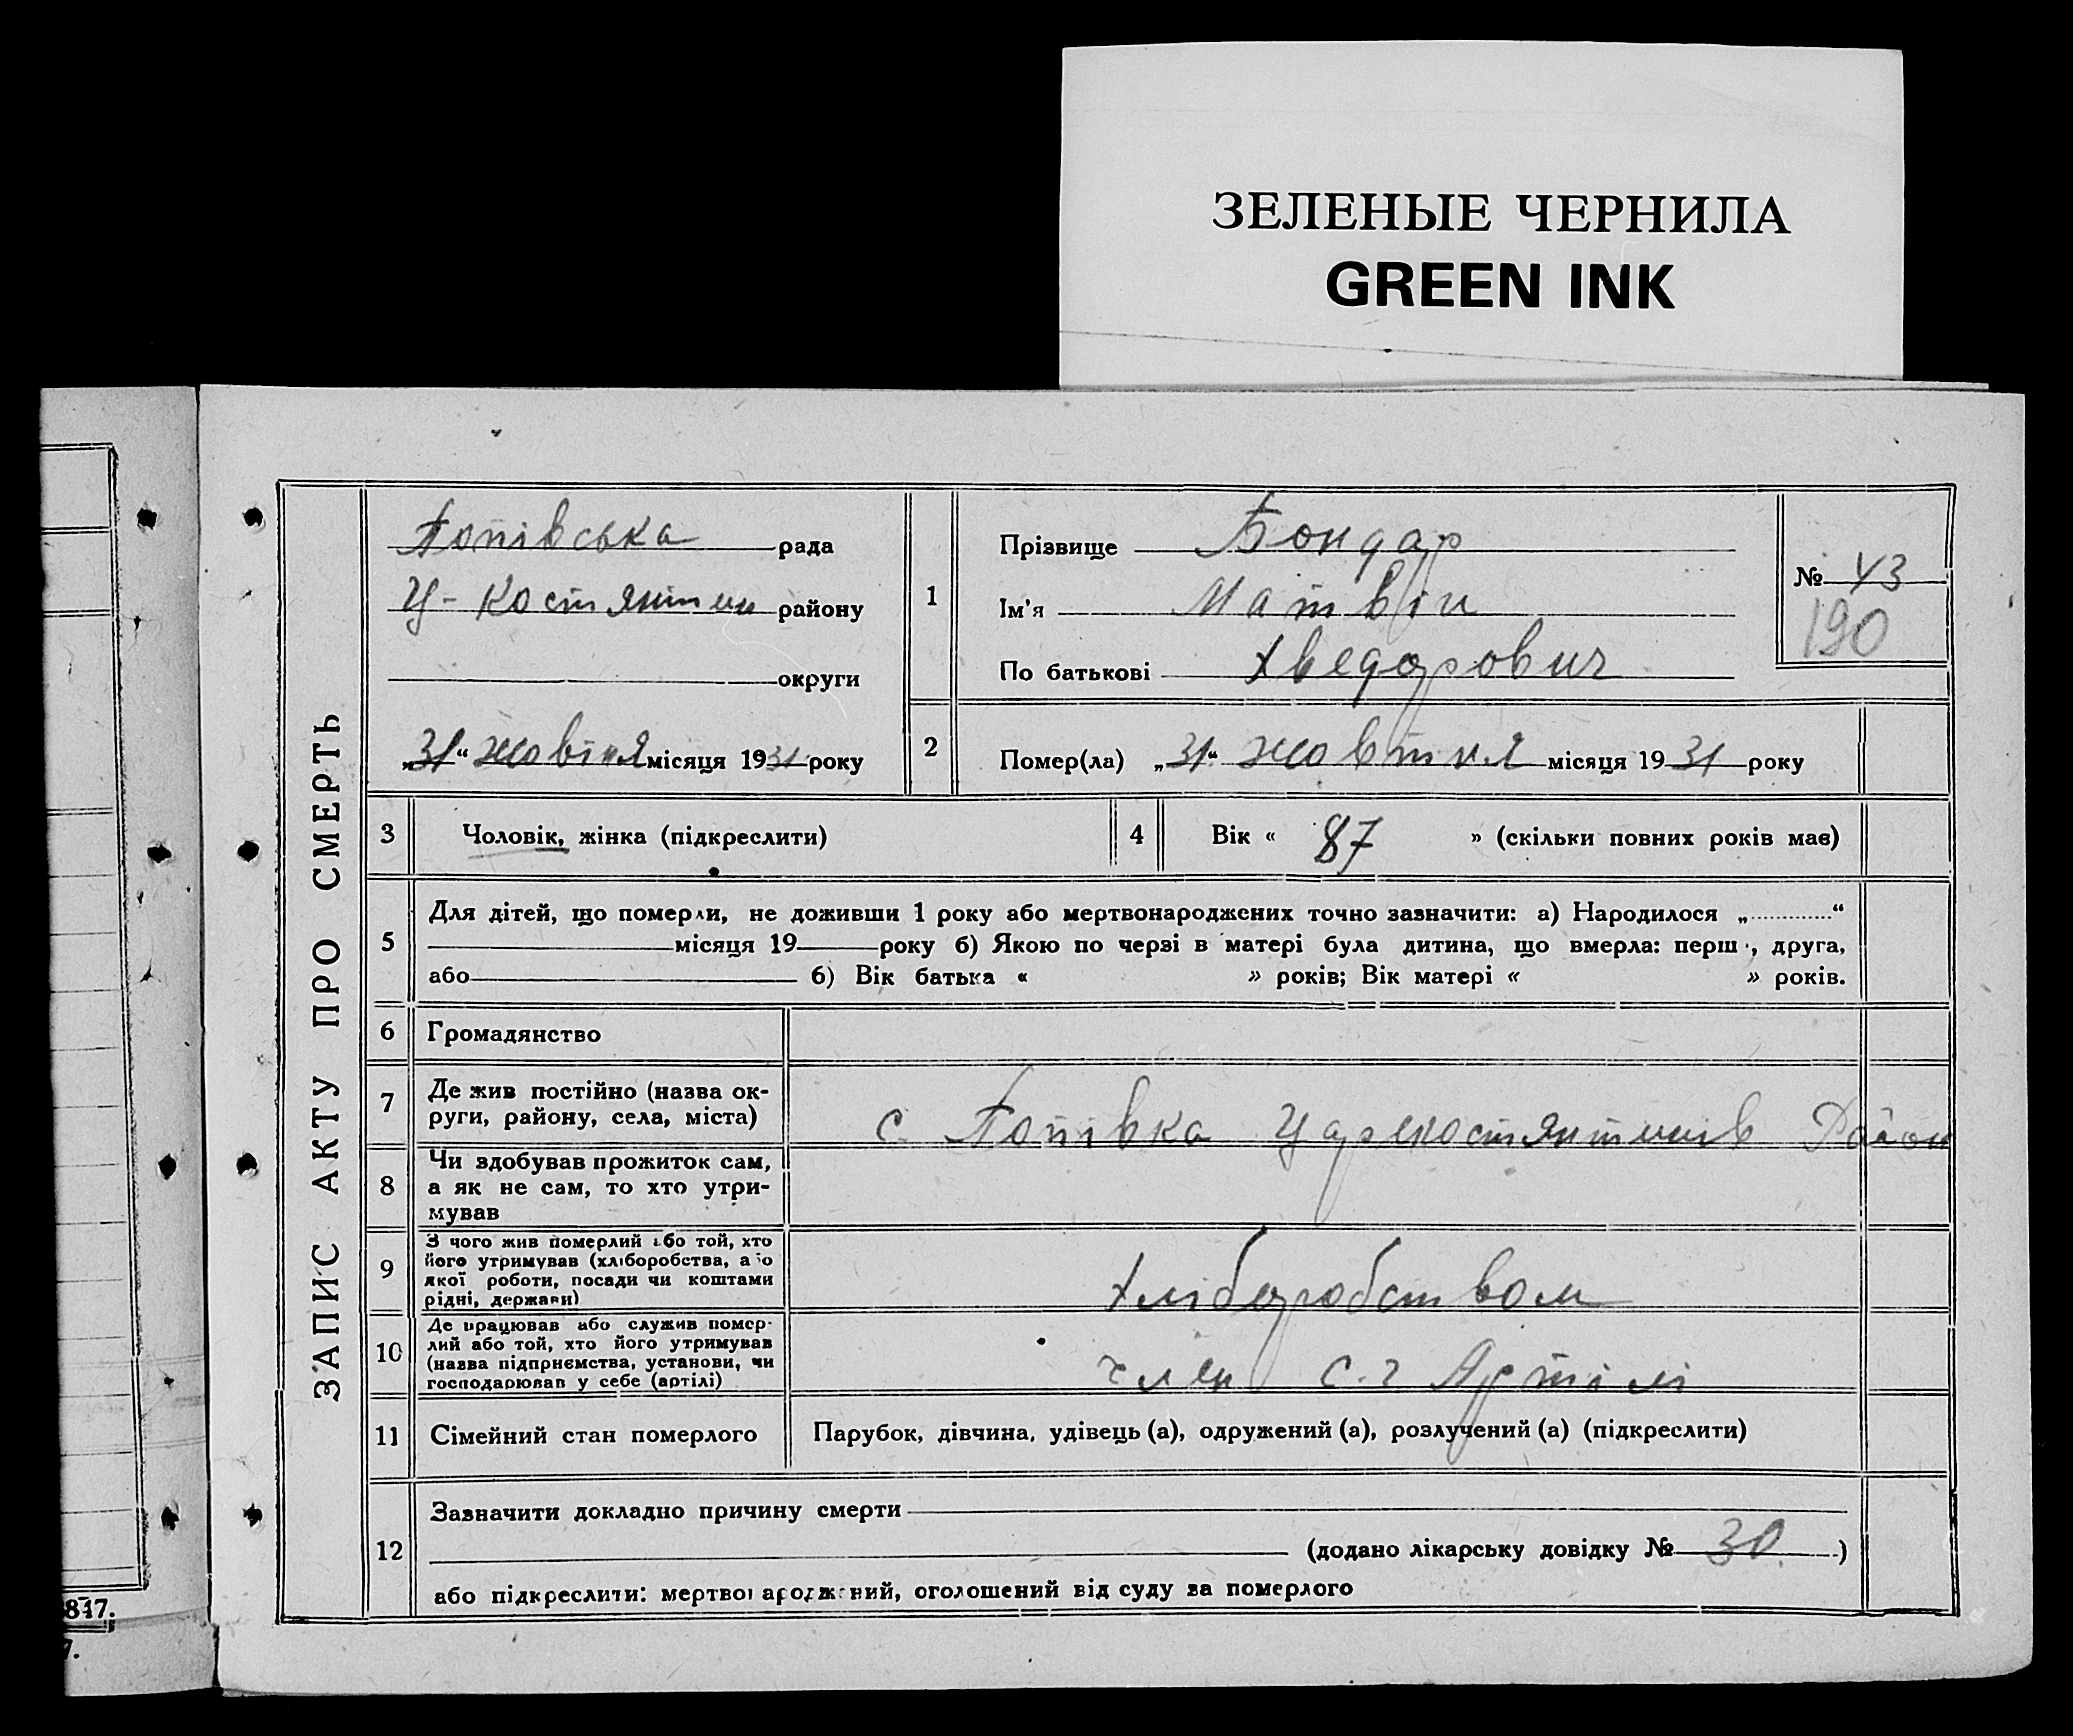 ЗЕЛЕНЫЕ ЧЕРНИЛА
GREEN INK
847.
ЗАПИС АКТУ ПРО СМЕРТЬ
Попівська рада
Ц-Костянтин району
округи
„31“ жовтня місяця 1931 року
1
Прізвище Бондар
Ім'я Матвіи
По батькові Хведорович
№ 43
190
2 Помер(ла) „31“ жовтня місяця 1931 року
3 Чоловік, жінка (підкреслити)
4 Вік « 87 » (скільки повних років має)
5 Для дітей, що померли, не доживши 1 року або мертвонароджених точно зазначити: а) Народилося „ “
місяця 19 року б) Якою по черзі в матері була дитина, що вмерла: перш , друга,
або б) Вік батька « » років; Вік матері « » років.
6 Громадянство
7 Де жив постійно (назва ок-
руги, району, села, міста)
с. Попівка Царекостянтинів Район
8 Чи здобував прожиток сам,
а як не сам, то хто утри-
мував
9 З чого жив померлий або той, хто
його утримував (хліборобства, або
якої роботи, посади чи коштами
рідні, держави)
Хліборобством
10 Де працював або служив помер-
лий або той, хто його утримував
(назва підприємства, установи, чи
господарював у себе (артілі)
член с.г Артілі
11 Сімейний стан померлого
Парубок, дівчина, удівець (а), одружений (а), розлучений (а) (підкреслити)
12 Зазначити докладно причину смерти
(додано лікарську довідку № 30 )
або підкреслити: мертвонароджений, оголошений від суду за померлого